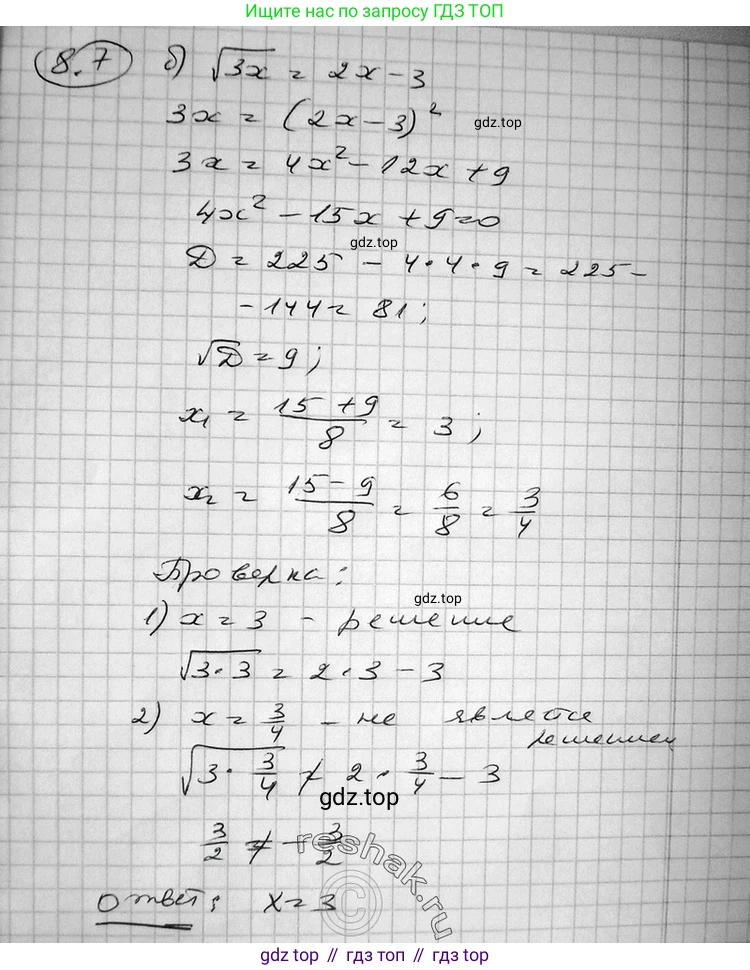 Ищите нас по запросу ГДЗ ТОП
8.7 б) √3x = 2x - 3
3x = (2x - 3)²
gdz.top
3x = 4x² - 12x + 9
4x² - 15x + 9 = 0
gdz.top
D = 225 - 4·4·9 = 225 -
- 144 = 81;
√D = 9;
x₁ = (15 + 9)/8 = 3;
x₂ = (15 - 9)/8 = 6/8 = 3/4
Проверка:
gdz.top
1) x = 3 - решение
√3·3 = 2·3 - 3
2) x = 3/4 - не является
решением
√3·3/4 ≠ 2·3/4 - 3
gdz.top
3/2 ≠ - 3/2
reshak.ru
©
Ответ: x = 3
gdz top // гдз топ // gdz top